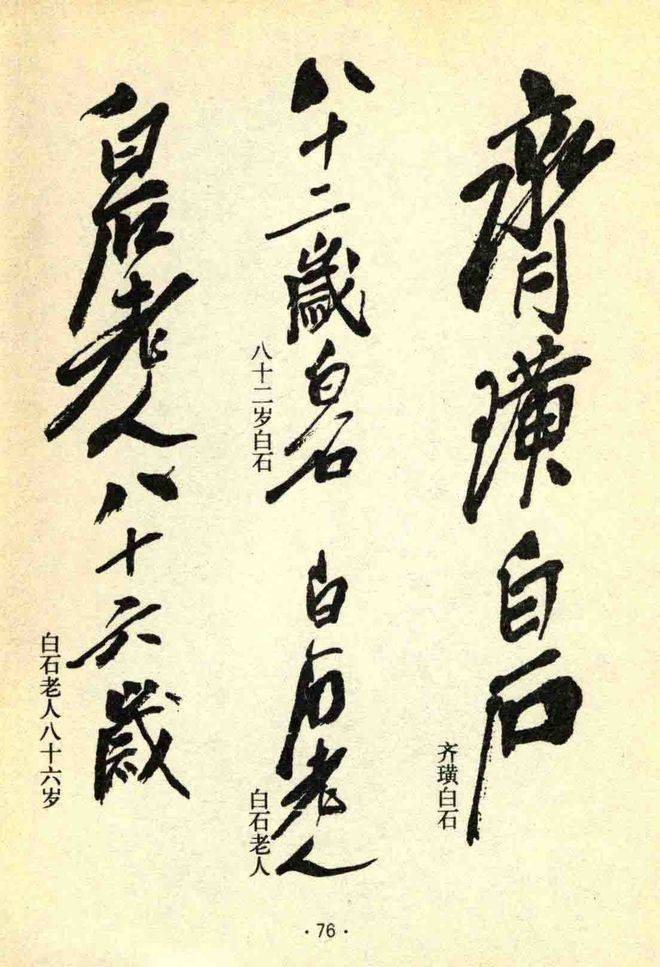 齊璜白石
齐璜白石
八十二歲白石
八十二岁白石
白石老人
白石老人
白石老人八十六歲
白石老人八十六岁
·76·